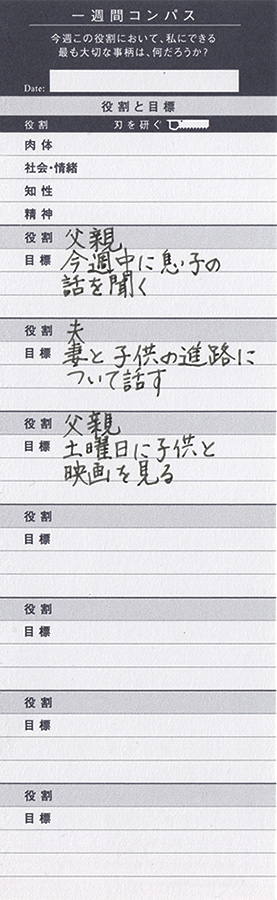 一週間コンパス
今週この役割において、私にできる
最も大切な事柄は、何だろうか?
Date:
役割と目標
役割 刃を研ぐ
肉体
社会・情緒
知性
精神
役割 父親
目標 今週中に息子の
話を聞く
役割 夫
目標 妻と子供の進路に
ついて話す
役割 父親
目標 土曜日に子供と
映画を見る
役割
目標
役割
目標
役割
目標
役割
目標